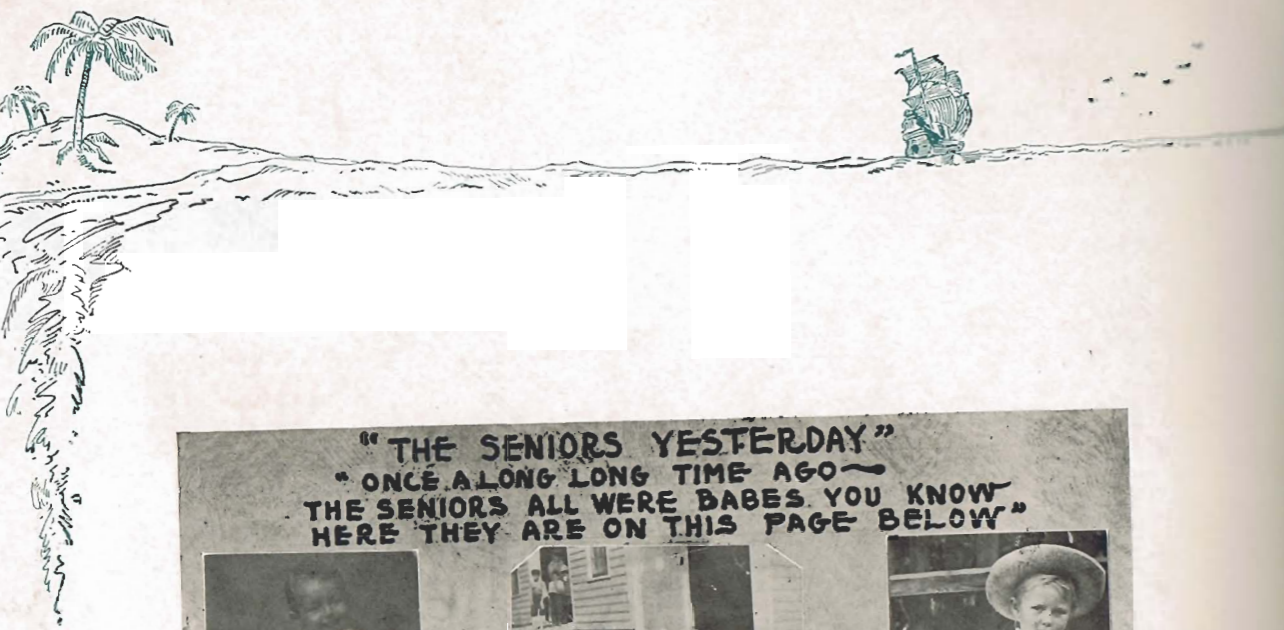 "THE SENIORS YESTERDAY"
"ONCE A LONG LONG TIME AGO~
THE SENIORS ALL WERE BABES YOU KNOW
HERE THEY ARE ON THIS PAGE BELOW"